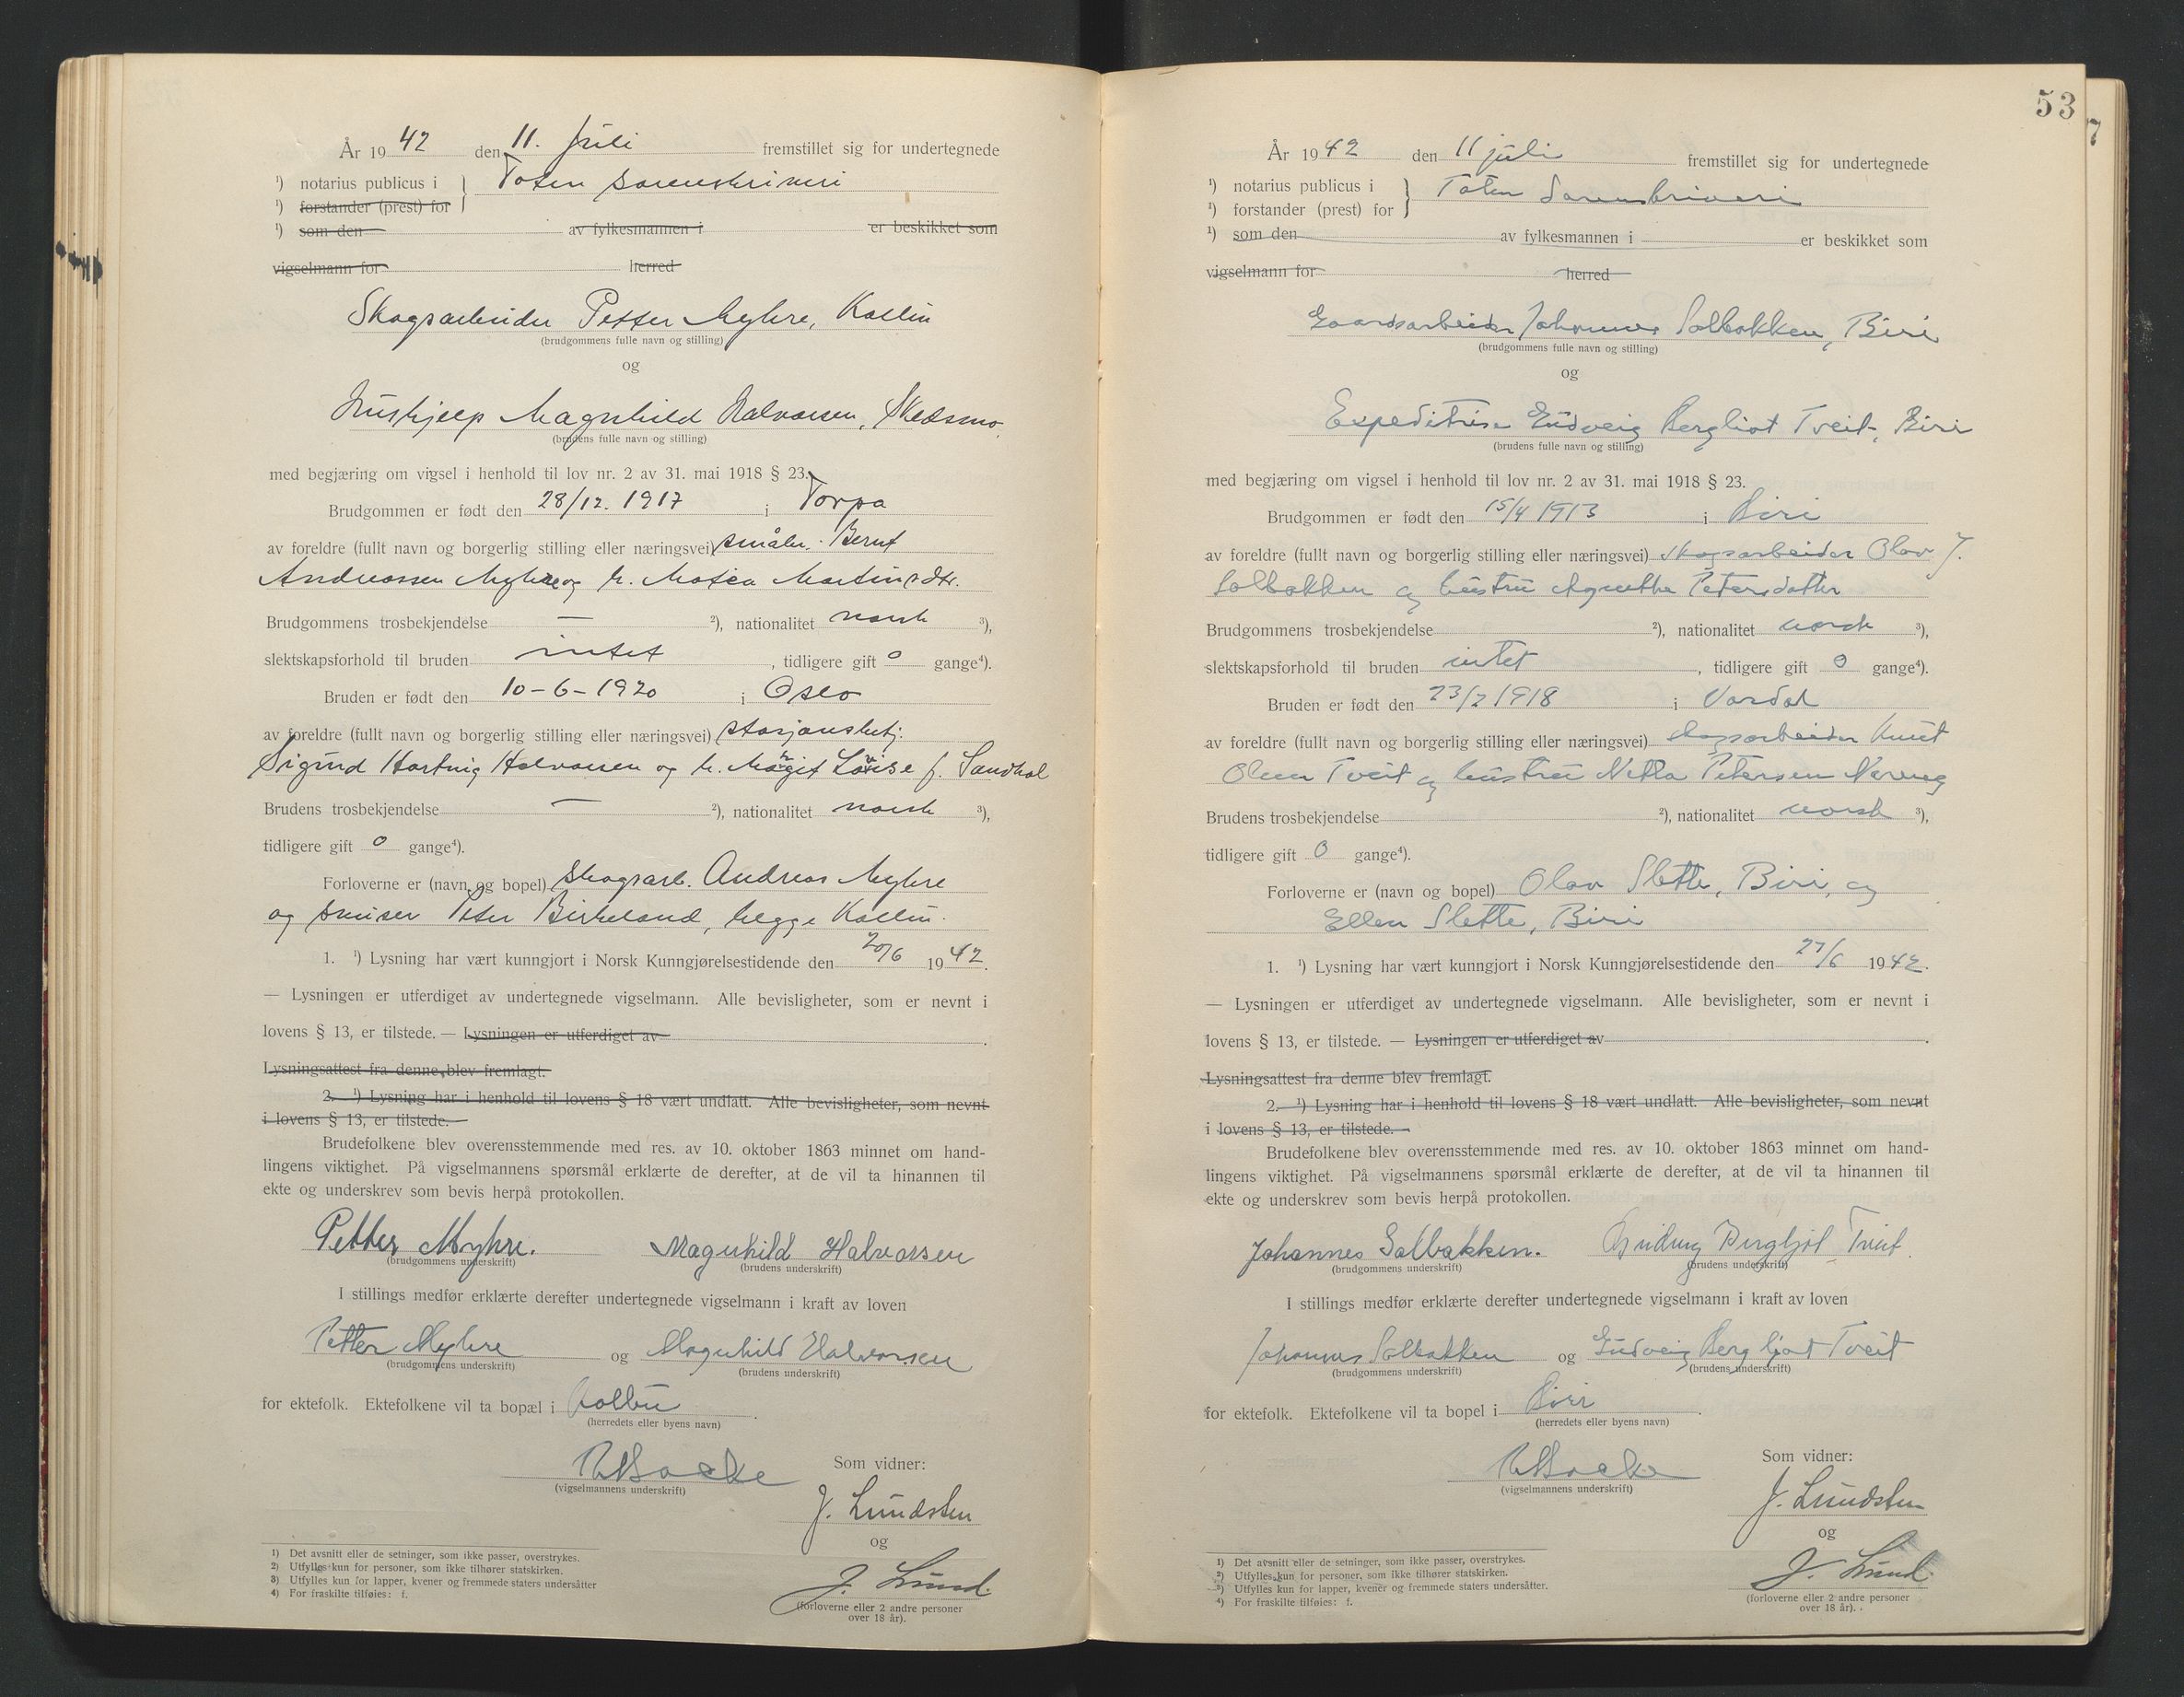 År 1942 den 11. Juli fremstillet sig for undertegnede
¹) notarius publicus i } Toten sorenskriveri
¹) forstander (prest) for
¹) som den av fylkesmannen i er beskikket som
vigselmann for herred
Skogsarbeider Petter Myhre, Kolbu
(brudgommens fulle navn og stilling)
og
Hushjelp Magnhild Halvorsen, Skedsmo.
(brudens fulle navn og stilling)
med begjæring om vigsel i henhold til lov nr. 2 av 31. mai 1918 § 23.
Brudgommen er født den 28/12. 1917 i Torpa
av foreldre (fullt navn og borgerlig stilling eller næringsvei) småbr. Bernt
Andreassen Myhre og h. Matea Martinsdtr.
Brudgommens trosbekjendelse — ²), nationalitet norsk ³),
slektskapsforhold til bruden intet, tidligere gift 0 gange⁴).
Bruden er født den 10-6-1920 i Oslo
av foreldre (fullt navn og borgerlig stilling eller næringsvei) stasjonsbetj.
Sigurd Hartvig Halvorsen og h. Margit Lovise f. Sandhol
Brudens trosbekjendelse — ²), nationalitet norsk ³),
tidligere gift 0 gange⁴).
Forloverne er (navn og bopel) skogsarb. Andreas Myhre
og Peter Birkeland, begge Kolbu.
1. ¹) Lysning har vært kunngjort i Norsk Kunngjørelsestidende den 20/6 1942.
— Lysningen er utferdiget av undertegnede vigselmann. Alle bevisligheter, som er nevnt i
lovens § 13, er tilstede. — Lysningen er utferdiget av .
Lysningsattest fra denne blev fremlagt.
2. ¹) Lysning har i henhold til lovens § 18 vært undlatt. Alle bevisligheter, som nevnt
i lovens § 13, er tilstede.
Brudefolkene blev overensstemmende med res. av 10. oktober 1863 minnet om hand-
lingens viktighet. På vigselmannens spørsmål erklærte de derefter, at de vil ta hinannen til
ekte og underskrev som bevis herpå protokollen.
Petter Myhre. Magnhild Halvorsen
(brudgommens underskrift) (brudens underskrift)
I stillings medfør erklærte derefter undertegnede vigselmann i kraft av loven
Petter Myhre og Magnhild Halvorsen
(brudgommens underskrift) (brudens underskrift)
for ektefolk. Ektefolkene vil ta bopæl i Kolbu.
(herredets eller byens navn)
Som vidner:
(vigselmannens underskrift)
J. Lundsten
og
J. Lund.
(forloverne eller 2 andre personer
over 18 år).
1) Det avsnitt eller de setninger, som ikke passer, overstrykes.
2) Utfylles kun for personer, som ikke tilhører statskirken.
3) Utfylles kun for lapper, kvener og fremmede staters undersåtter
4) For fraskilte tilføies: f.
53
7
År 1942 den 11 juli fremstillet sig for undertegnede
¹) notarius publicus i } Toten Sorenskriveri
¹) forstander (prest) for
¹) som den av fylkesmannen i er beskikket som
vigselmann for herred
Gaardsarbeider Johannes Solbakken, Biri
(brudgommens fulle navn og stilling)
og
Expeditrise Gudveig Bergliot Tveit, Biri
(brudens fulle navn og stilling)
med begjæring om vigsel i henhold til lov nr. 2 av 31. mai 1918 § 23.
Brudgommen er født den 15/4 1913 i Biri
av foreldre (fullt navn og borgerlig stilling eller næringsvei) skogsarbeider Olav J.
Solbakken og hustru Agnethe Petersdatter
Brudgommens trosbekjendelse ²), nationalitet norsk ³),
slektskapsforhold til bruden intet, tidligere gift 0 gange⁴).
Bruden er født den 23/2 1918 i Vardal
av foreldre (fullt navn og borgerlig stilling eller næringsvei) skogsarbeider Knut
Olsen Tveit og hustru Petersen
Brudens trosbekjendelse ²), nationalitet norsk ³),
tidligere gift 0 gange⁴).
Forloverne er (navn og bopel) Olav Slette, Biri, og
Ellen Slette, Biri
1. ¹) Lysning har vært kunngjort i Norsk Kunngjørelsestidende den 27/6 1942.
— Lysningen er utferdiget av undertegnede vigselmann. Alle bevisligheter, som er nevnt i
lovens § 13, er tilstede. — Lysningen er utferdiget av .
Lysningsattest fra denne blev fremlagt.
2. ¹) Lysning har i henhold til lovens § 18 vært undlatt. Alle bevisligheter, som nevnt
i lovens § 13, er tilstede.
Brudefolkene blev overensstemmende med res. av 10. oktober 1863 minnet om hand-
lingens viktighet. På vigselmannens spørsmål erklærte de derefter, at de vil ta hinannen til
ekte og underskrev som bevis herpå protokollen.
Johannes Solbakken. Gudveig Bergljot Tveit.
(brudgommens underskrift) (brudens underskrift)
I stillings medfør erklærte derefter undertegnede vigselmann i kraft av loven
Johannes Solbakken og Gudveig Bergliot Tveit
(brudgommens underskrift) (brudens underskrift)
for ektefolk. Ektefolkene vil ta bopel i Biri.
(herredets eller byens navn)
Som vidner:
(vigselmannens underskrift)
J. Lundsten
og
J. Lund.
(forloverne eller 2 andre personer
over 18 år).
¹) Det avsnitt eller de setninger, som ikke passer, overstrykes.
²) Utfylles kun for personer, som ikke tilhører statskirken.
³) Utfylles kun for lapper, kvener og fremmede staters undersåtter.
⁴) For fraskilte tilføies: f.